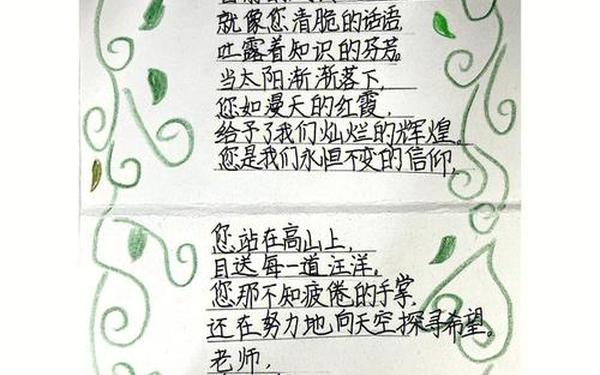 就像您清脆的话语,
吐露着知识的芬芳。
当太阳渐渐落下,
您如漫天的红霞,
给予了我们灿烂的辉煌。
您是我们永恒不变的信仰,
您站在高山上,
目送每一道汪洋,
您那不知疲倦的手掌,
还在努力地向天空探寻希望。
老师,